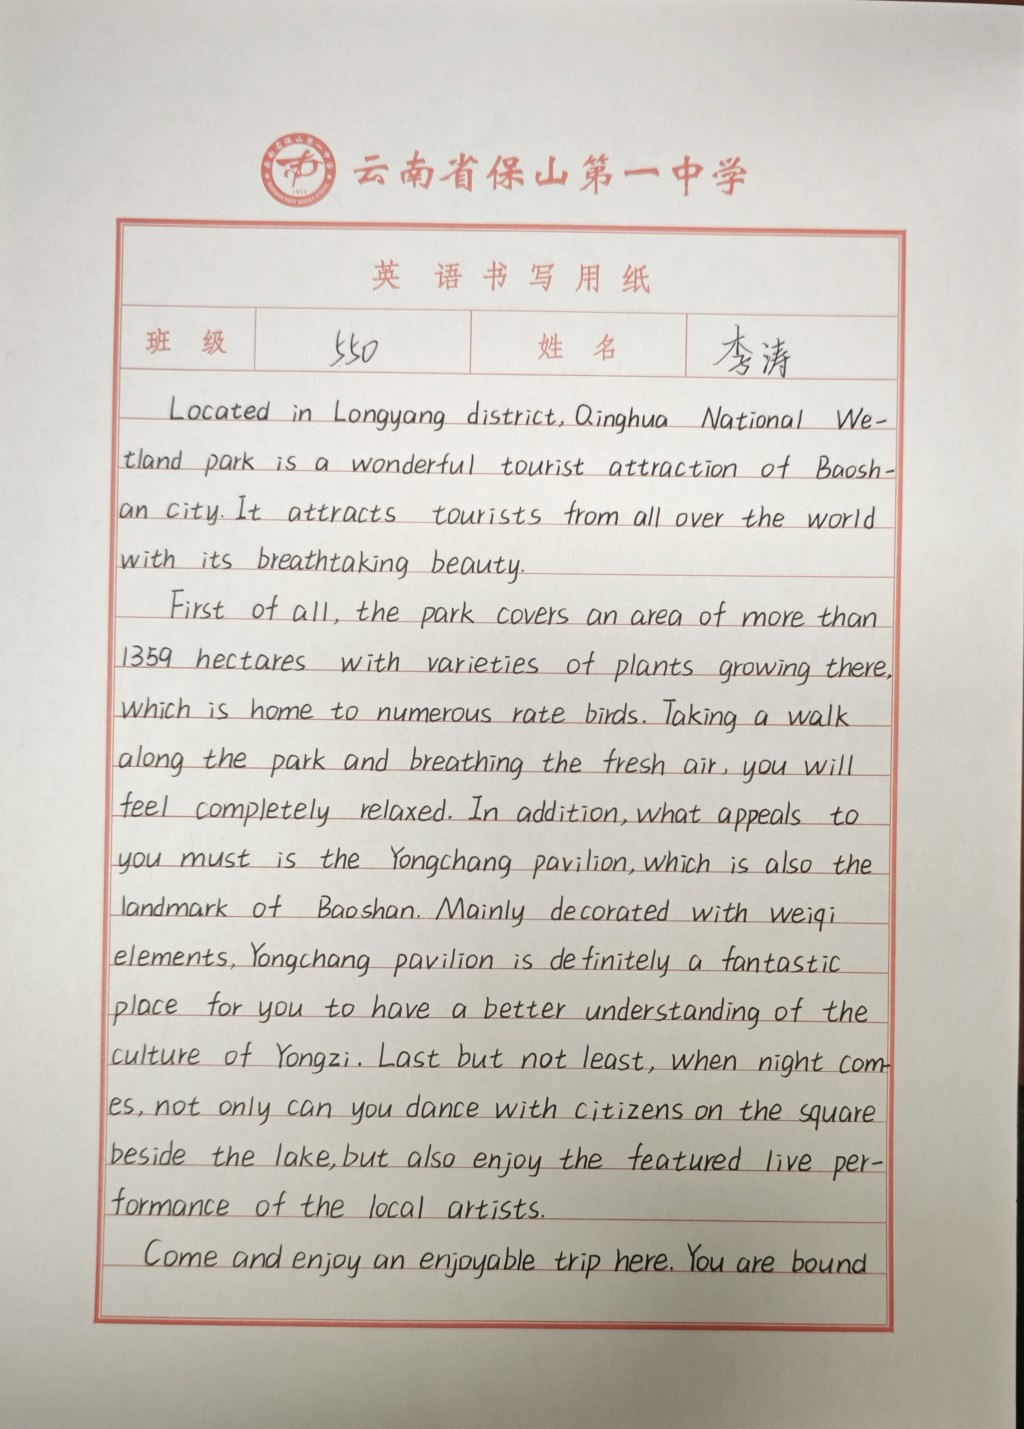 云南省保山第一中学
英语书写用纸
班级 550 姓名 李涛
Located in Longyang district, Qinghua National We-
tland park is a wonderful tourist attraction of Baosh-
an city. It attracts tourists from all over the world
with its breathtaking beauty.
First of all, the park covers an area of more than
1359 hectares with varieties of plants growing there,
which is home to numerous rate birds. Taking a walk
along the park and breathing the fresh air, you will
feel completely relaxed. In addition, what appeals to
you must is the Yongchang pavilion, which is also the
landmark of Baoshan. Mainly decorated with weiqi
elements, Yongchang pavilion is definitely a fantastic
place for you to have a better understanding of the
culture of Yongzi. Last but not least, when night com-
es, not only can you dance with citizens on the square
beside the lake, but also enjoy the featured live per-
formance of the local artists.
Come and enjoy an enjoyable trip here. You are bound